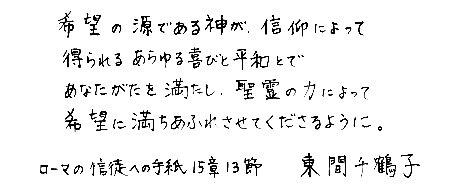 希望の源である神が、信仰によって
得られるあらゆる喜びと平和とで
あなたがたを満たし、聖霊の力によって
希望に満ちあふれさせてくださるように。
ローマの信徒への手紙15章13節 東間千鶴子